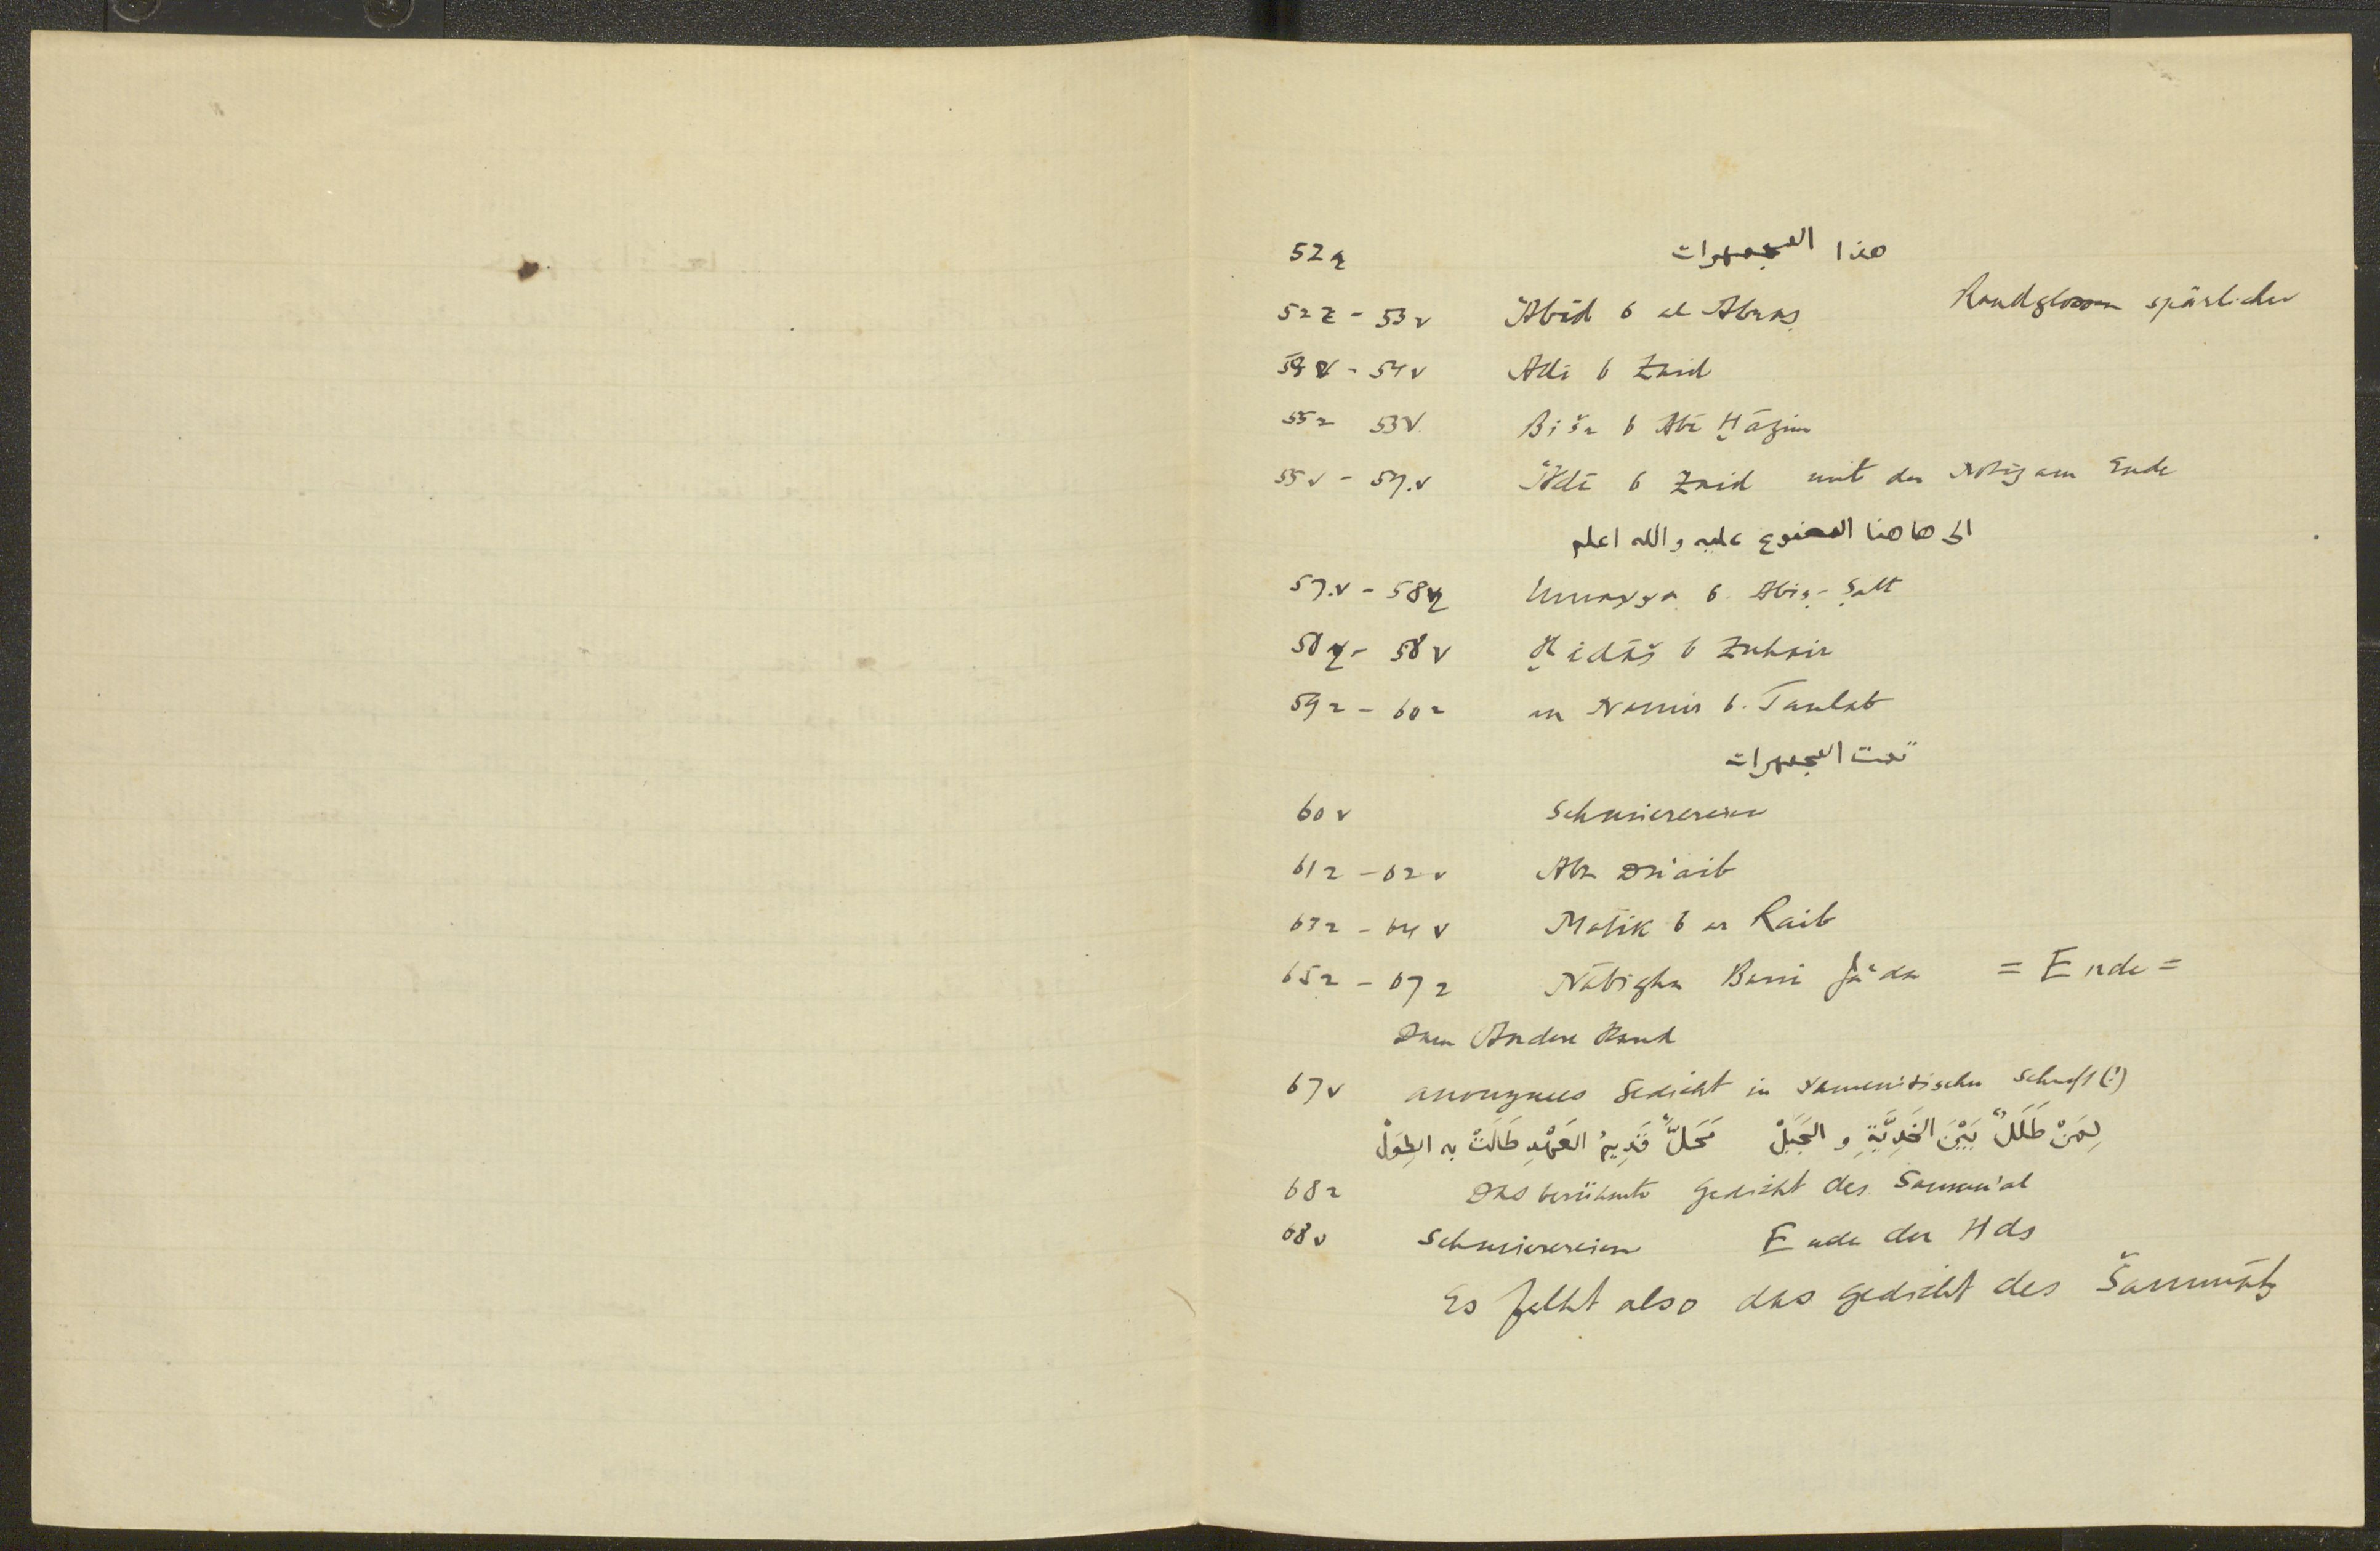 52r هذا المجمهرات
52r - 53v ʿAbīd b al Abraṣ Randglossen spärlicher
54v Adī b Zaid
55r 53v Bišr b Abī Ḫāzim
55v - 57.v ʿAdī b Zaid mit der Notiz am Ende
الى هاهنا المصنوع عليه والله اعلم
57.v - 58r Umayya b. Abiṣ-Ṣalt
58r - 58v Ḫidāš b Zuhair
59r - 60r an Namir b. Taulab
تمت المجمهرات
60v Schmierereien
61r - 62v Abu Ḏu'aib
63r - 64v Malik b ar Raib
65r - 67r Nābigha Bani Ja'da = Ende =
Dann Andere Hand
67v anonymes Gedicht in yamenitischer Schrift (!)
لِمَنْ طَلَلٌ بَيْنَ الجَدِيَّةِ و الجَبَلْ مَحَلٌّ قَدِيمُ العَهْدِ طَالَتْ به الطِوَلْ
68r Das berühmte Gedicht des Samau'al
68v Schmierereien Ende der Hds
Es fehlt also das Gedicht des Šammāḫ